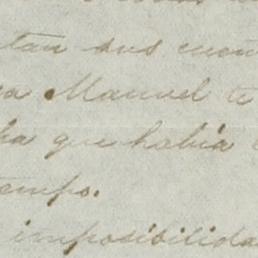 tan sus cuen
Manuel te
que había
tiempo.
imposibilida